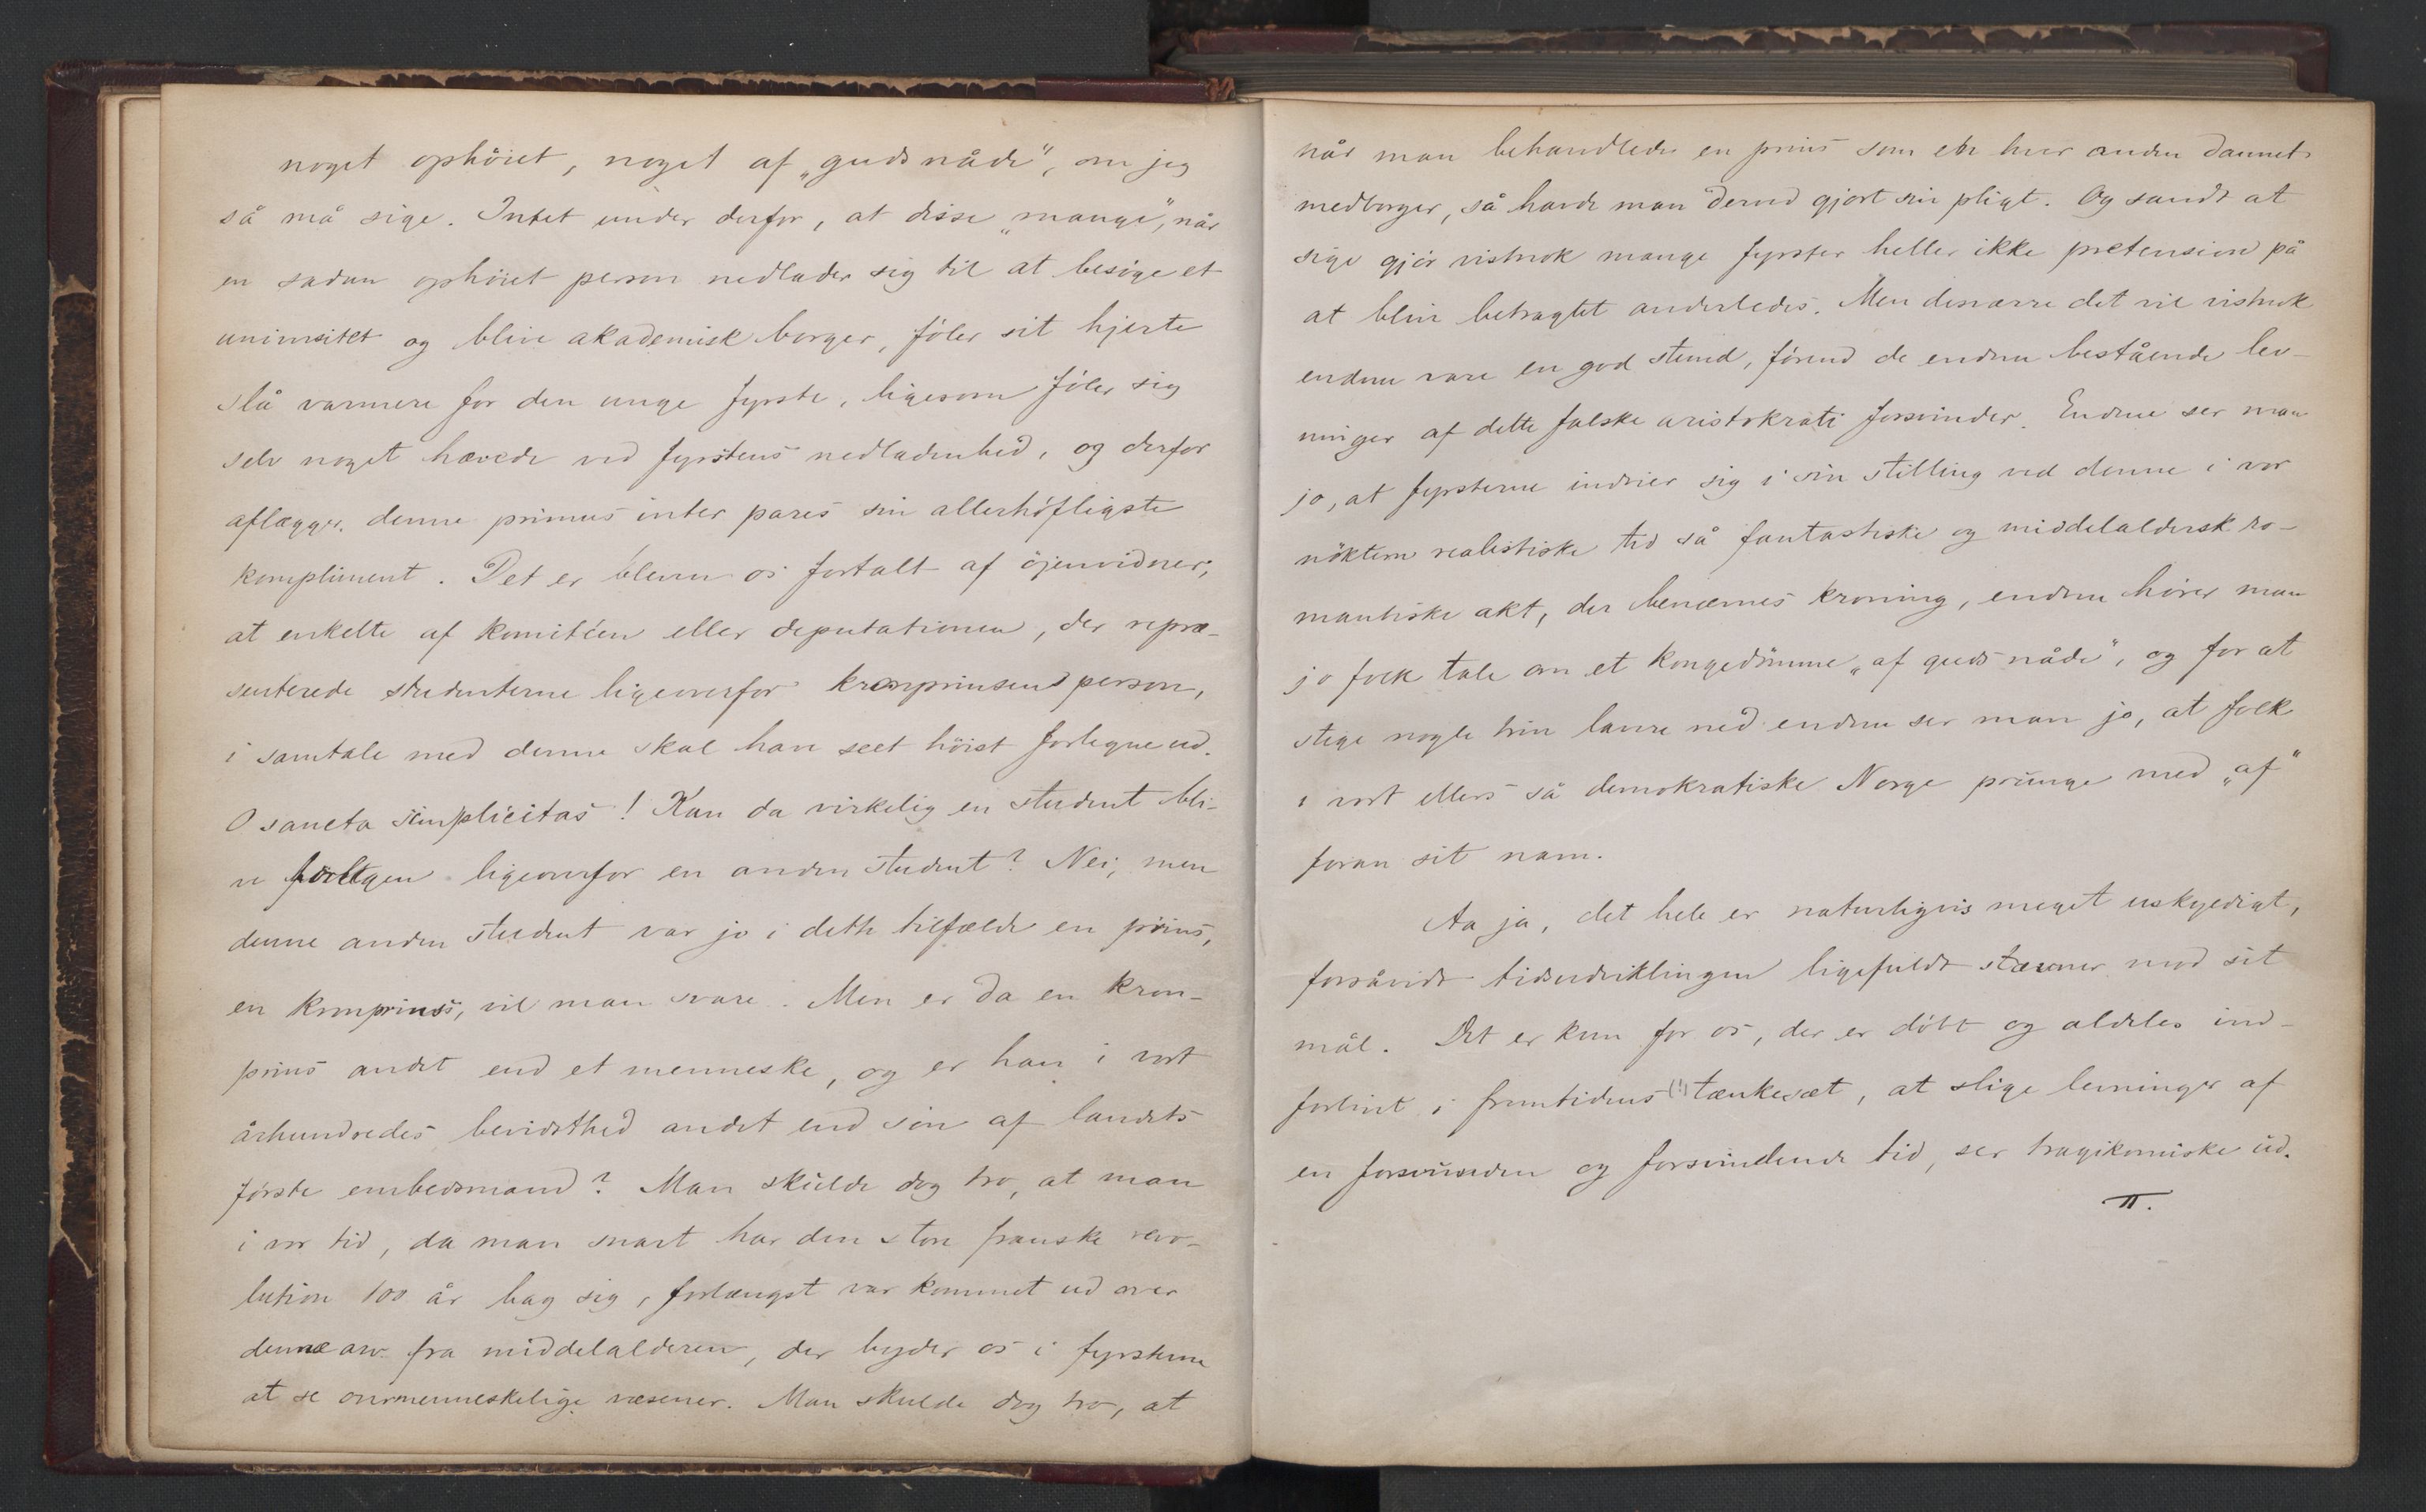 noget ophöiet, noget af „guds nåde“, om jeg
så må sige. Intet under derfor, at disse „mange“, når
en sådan ophöiet person nedlader sig til at besöge et
universitet og blive akademisk borger, föler sit hjerte
slå varmere for den unge fyrste, ligesom föler sig
selv noget hævede ved fyrstens nedladenhed, og derfor
aflægger denne primus inter pares sin allerhöfligste
kompliment. Det er bleven os fortalt af öjenvidner,
at enkelte af komitéen eller deputationen, der repræ-
senterede studenterne ligeoverfor kronprinsens person,
i samtale med denne skal have seet höist forlegne ud.
O sancta simplicitas! Kan da virkelig en student bli-
ve forlegen ligeoverfor en anden student? Nei, men
denne anden student var jo i dette tilfælde en prins,
en kronprins, vil man svare. Men er da en kron-
prins andet end et menneske, og er han i vort
århundredes bevidsthed andet end sön af landets
förste embedsmand? Man skulde dog tro, at man
i vor tid, da man snart har den store franske revo-
lution 100 år bag sig, forlængst var kommet ud over
denne arv fra middelalderen, der byder os i fyrsterne
at se overmenneskelige væsener. Man skulde dog tro, at
når man behandlede en prins som en hver anden dannet
medborger, så havde man derved gjort sin pligt. Og sandt at
sige gjör vistnok mange fyrster heller ikke pretension på
at blive betragtet anderledes. Men desværre det vil vistnok
endnu vare en god stund, förend de endnu bestående lev-
ninger af dette falske aristokrati forsvinder. Endnu ser man
jo, at fyrsterne indvier sig i sin stilling ved denne i vor
nöktern realistiske tid så fantastiske og middelaldersk ro-
mantiske akt, der benævnes kroning, endnu hörer man
jo folk tale om et kongedömme „af guds nåde“, og for at
stige nogle trin lavere ned endnu ser man jo, at folk
i vort ellers så demokratiske Norge prunge med „af“
foran sit navn.
Aa ja, det hele er naturligvis meget uskyldigt,
forsåvidt tidsudviklingen ligefuldt stævner mod sit
mål. Det er kun for os, der er döbt og aldeles ind-
forlivt i fremtidens (!) tænkesæt, at slige levninger af
en forsvunden og forsvindende tid, ser tragikomiske ud.
π.